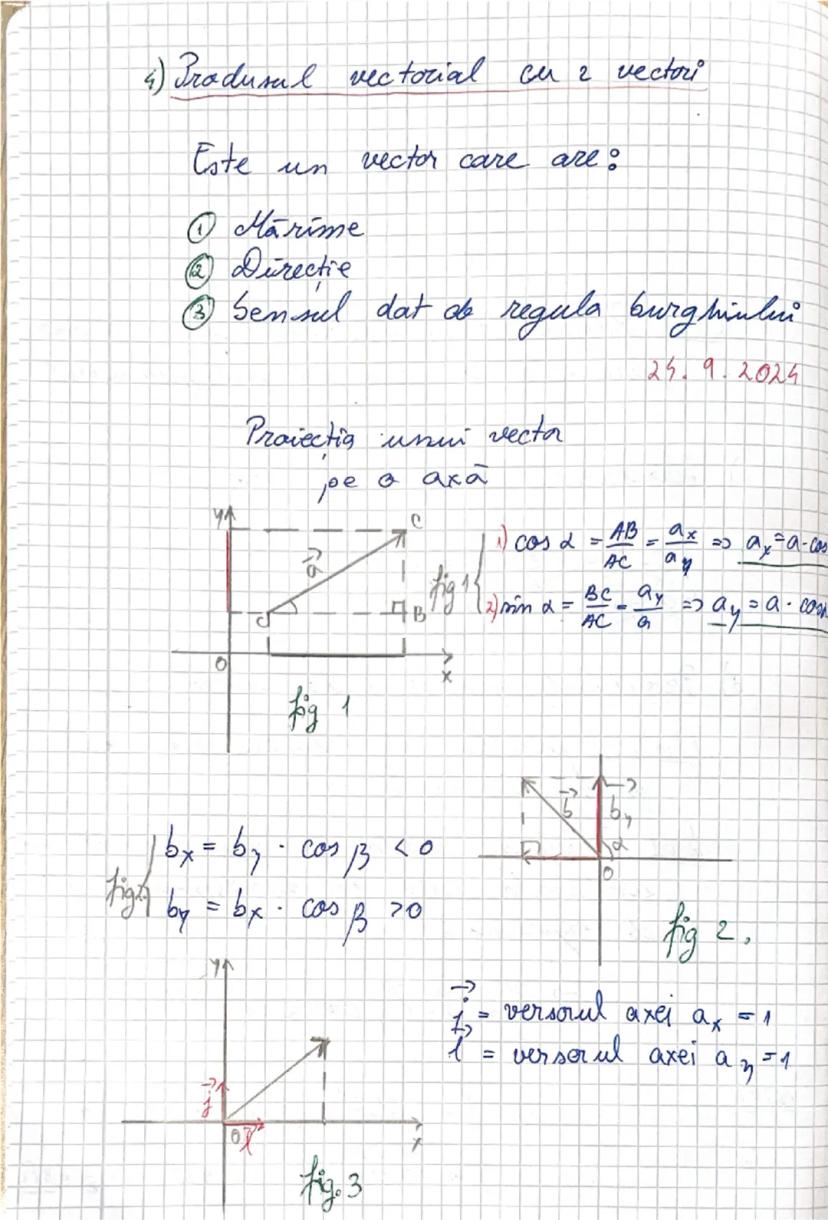 4) Produsul vectorial cu 2 vectori
Este un vector care are:
① Mărime
② Direcție
③ Sensul dat de regula burghiului
24.9.2024
Proiecția unui vector
pe o axă
y
C
a⃗
B
O
x
fig 1
fig 1
1) cos α = AB/AC = ax/ay => ax = a·cos
2) sin α = BC/AC = ay/a => ay = a · cos
b⃗
by
α
O
fig 2.
fig 2
bx = by · cos β < 0
by = bx · cos β > 0
y
j⃗
O
i⃗
x
fig. 3
j⃗ = versorul axei ax = 1
i⃗ = versorul axei ay = 1